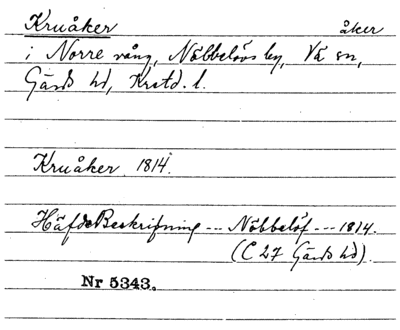 Kruåker åker
i Norre vång, Nöbbelövs by, Vä sn,
Gärds hd, Kristd. l.
Kruåker 1814.
Häfde Beskrifning --- Nöbbelöf --- 1814.
(C 27 Gärds hd).
Nr 5343.